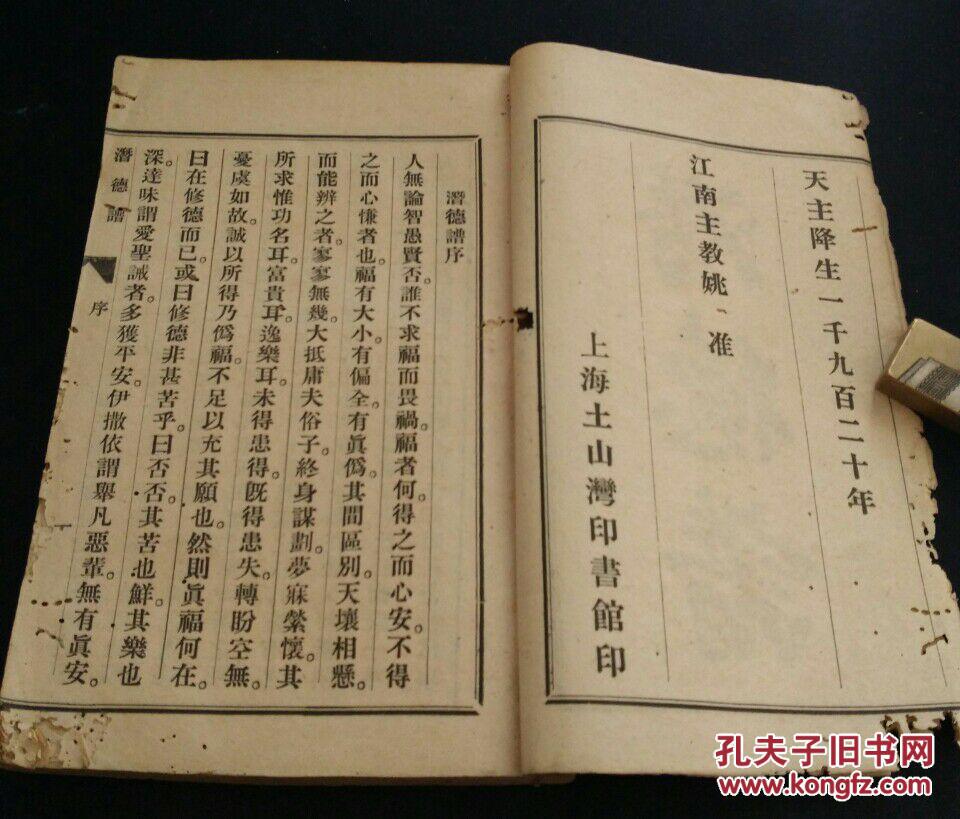 天主降生一千九百二十年
江南主教姚 准
上海土山灣印書館印
潛德譜序
人無論智愚賢否。誰不求福而畏禍。福者何。得之而心安。不得
之而心慊者也。福有大小。有偏全。有眞僞。其間區別。天壤相懸。
而能辨之者。寥寥無幾。大抵庸夫俗子。終身謀劃。夢寐縈懷。其
所求惟功名耳。富貴耳。逸樂耳。未得患得。旣得患失。轉盼空無。
憂虞如故。誠以所得乃僞福。不足以充其願也。然則眞福何在。
曰在修德而已。或曰修德非甚苦乎。曰否否。其苦也鮮。其樂也
深。達味謂愛聖誡者。多獲平安。伊撒依謂舉凡惡輩。無有眞安。
潛德譜 序
孔夫子旧书网
www.kongfz.com